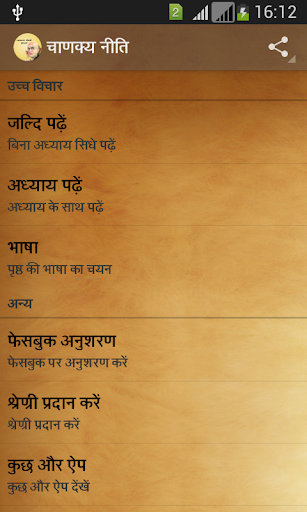 2
16:12
चाणक्य नीति
उच्च विचार
जल्दि पढ़ें
बिना अध्याय सिधे पढ़ें
अध्याय पढ़ें
अध्याय के साथ पढ़ें
भाषा
पृष्ठ की भाषा का चयन
अन्य
फेसबुक अनुशरण
फेसबुक पर अनुशरण करें
श्रेण्री प्रदान करें
श्रेण्री प्रदान करें
कुछ और ऐप
कुछ और ऐप देंखें